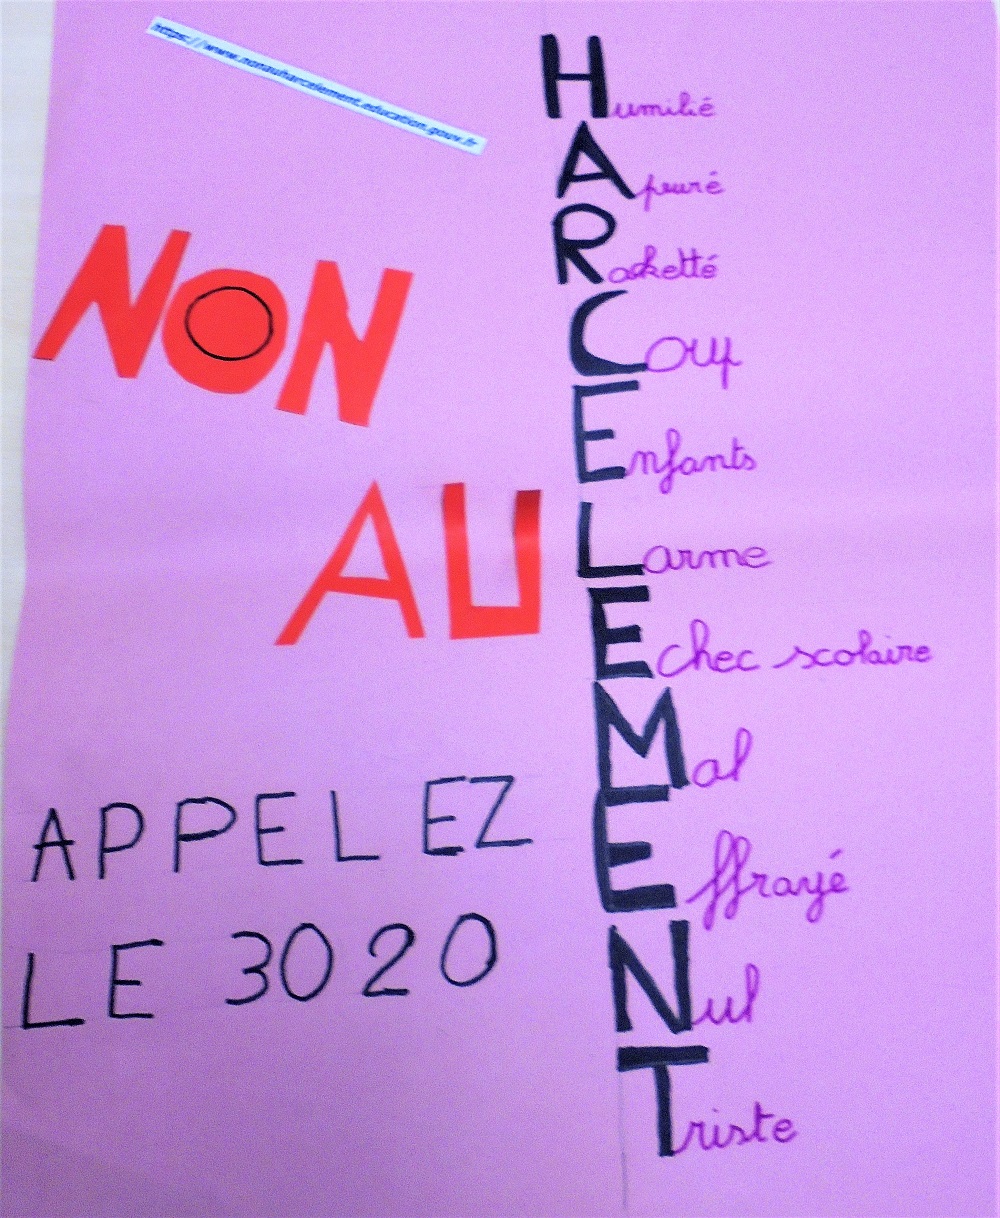 https://www.nonauharcelement.education.gouv.fr
NON
AU
APPELEZ
LE 3020
Humilié
Apeuré
Racketté
Coup
Enfants
Larme
Echec scolaire
Mal
Effrayé
Nul
Triste